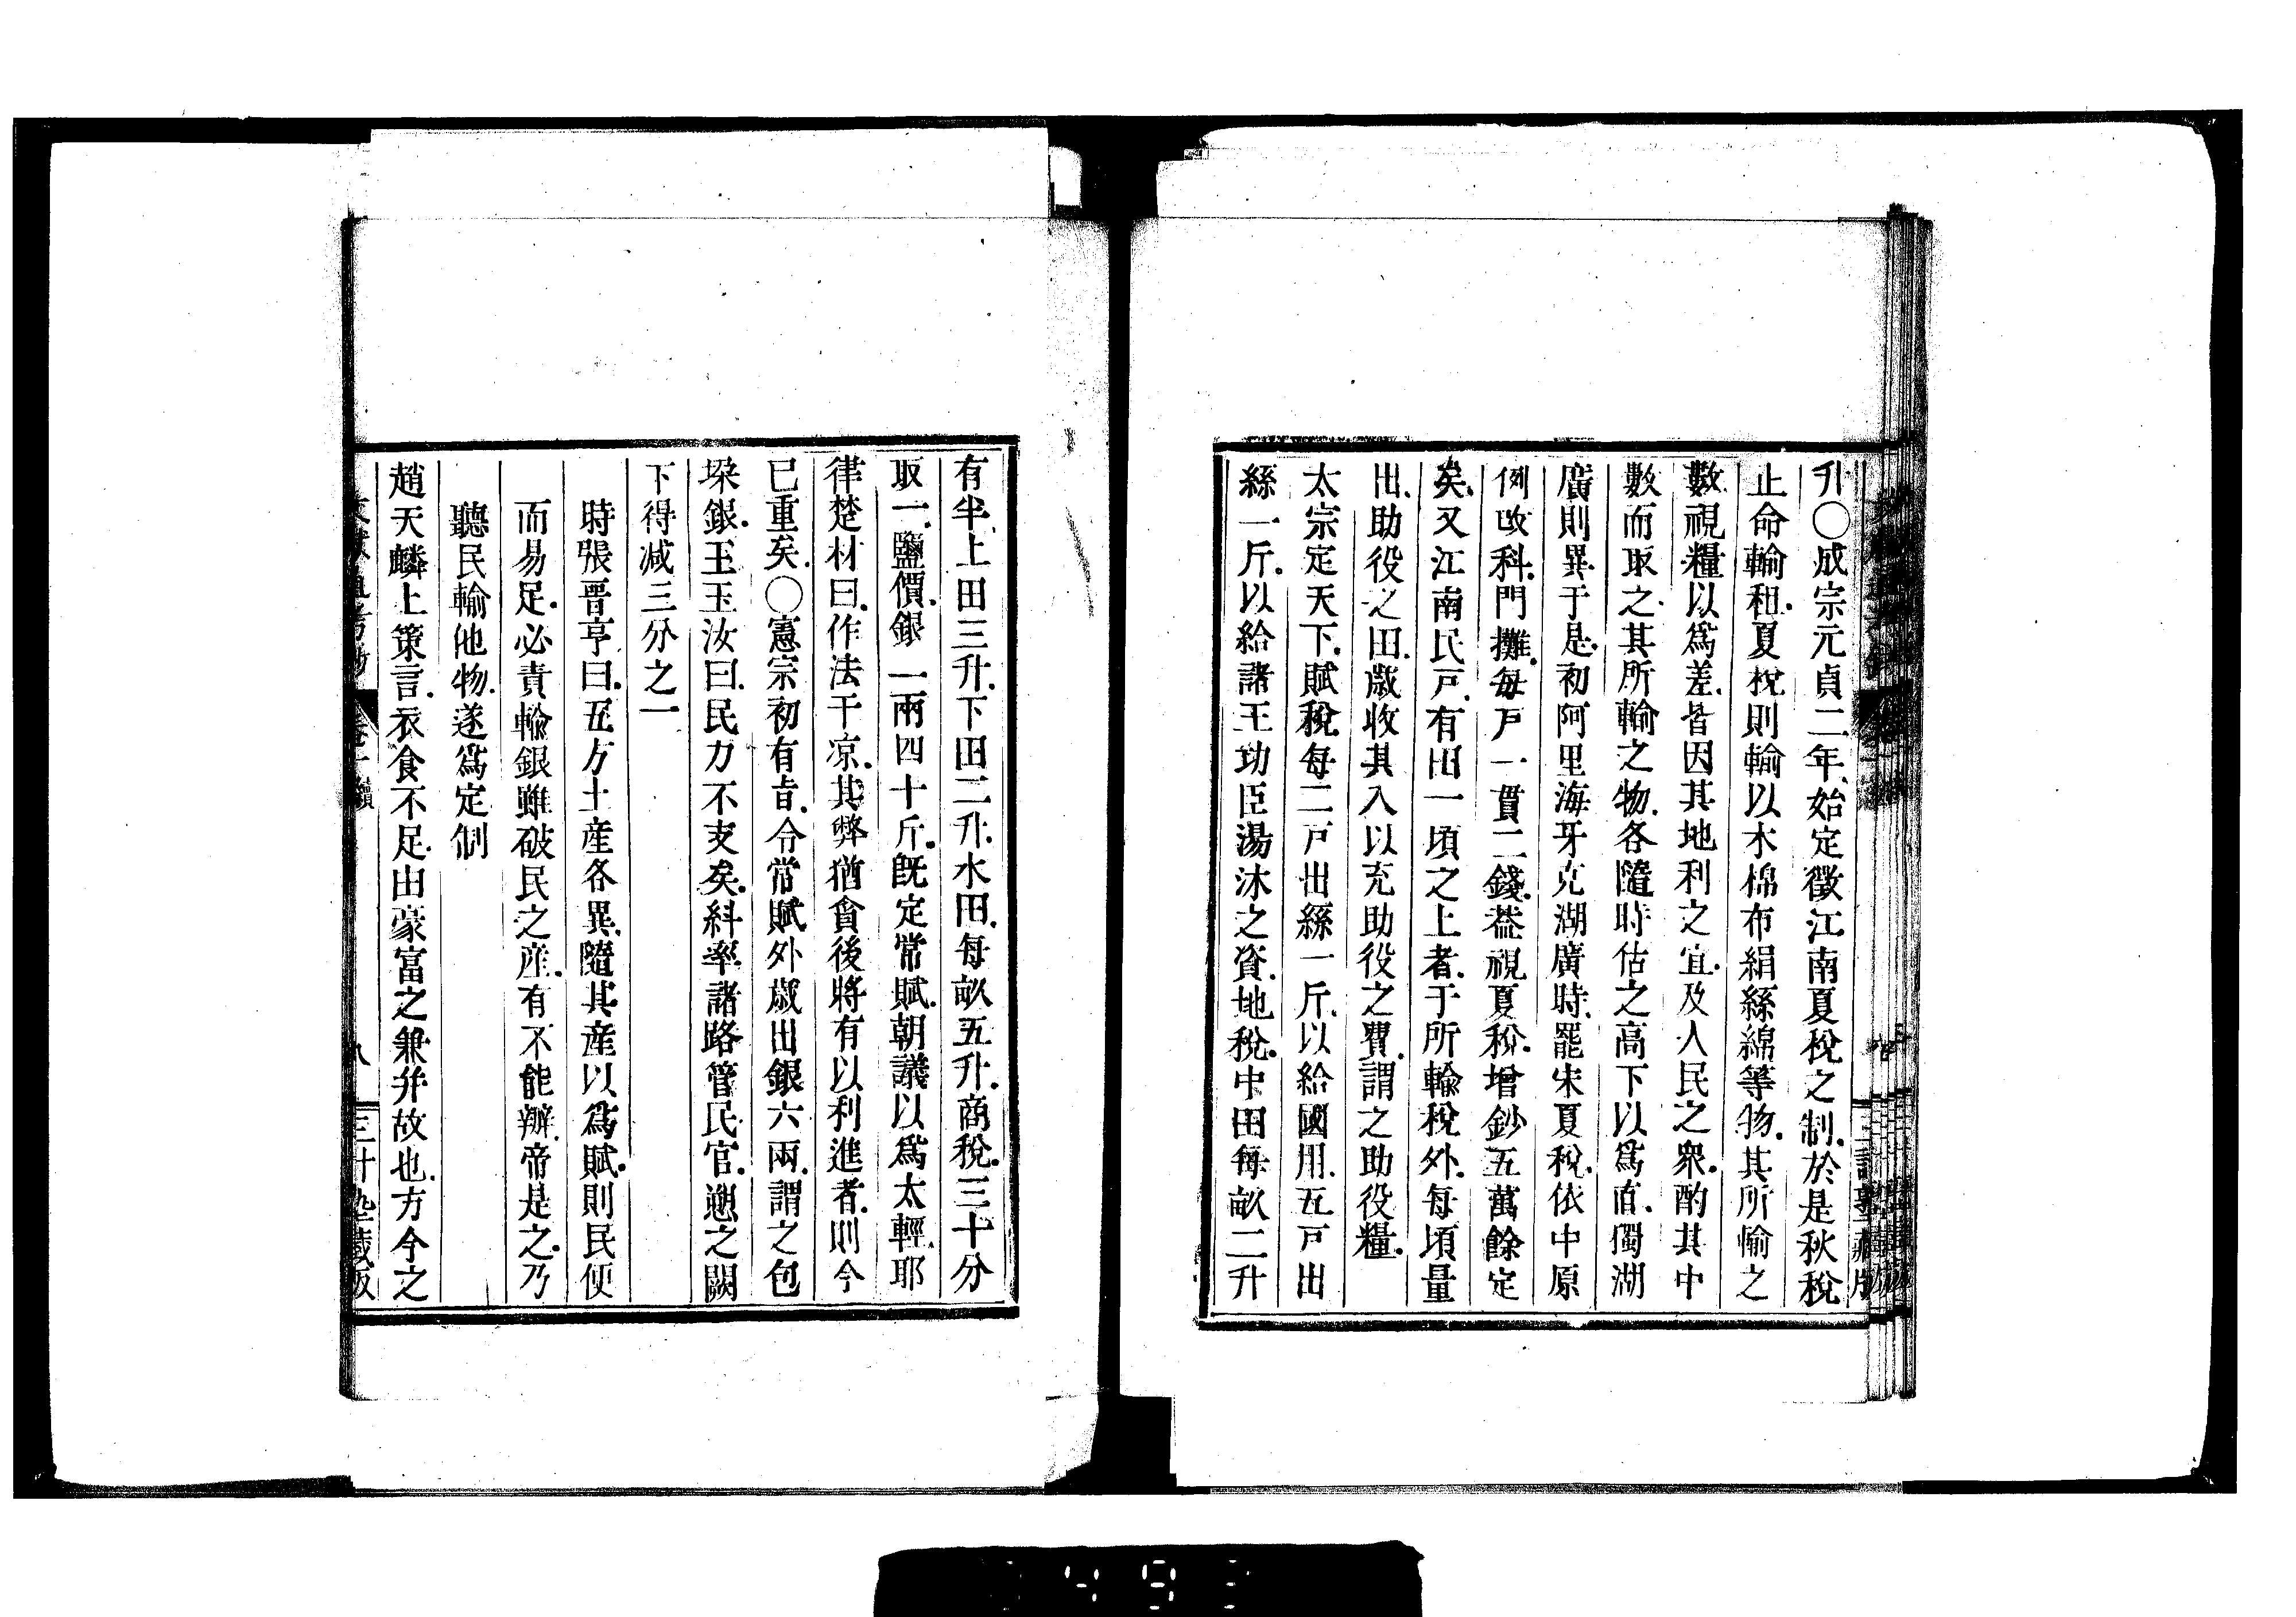 升○成宗元貞二年始定徵江南夏稅之制於是秋稅
止命輸租夏稅則輸以木棉布絹絲綿等物其所輸之
數視糧以爲差皆因其地利之宜及人民之衆酌其中
數而取之其所輸之物各隨時估之高下以爲直獨湖
廣則異于是初阿里海牙克湖廣時罷宋夏稅依中原
例改科門攤每戸一貫二錢葢視夏稅增鈔五萬餘定
矣又江南民戸有田一頃之上者于所輸稅外每頃量
出助役之田歲收其入以充助役之費謂之助役糧
太宗定天下賦稅每二戸出絲一斤以給國用五戸出
絲一斤以給諸王功臣湯沐之資地稅中田每畝二升
有半上田三升下田二升水田每畝五升商稅三十分
取一鹽價銀一兩四十斤旣定常賦朝議以爲太輕耶
律楚材曰作法于凉其弊猶貪後將有以利進者則今
已重矣○憲宗初有旨令常賦外歲出銀六兩謂之包
垜銀王玉汝曰民力不支矣糾率諸路管民官愬之闕
下得减三分之一
時張晋亨曰五方土産各異隨其産以爲賦則民便
而易足必責輸銀雖破民之産有不能辦帝是之乃
聽民輸他物遂爲定制
趙天麟上策言衣食不足由豪富之兼并故也方今之
文獻通考抄 卷一續 八 三計塾藏版